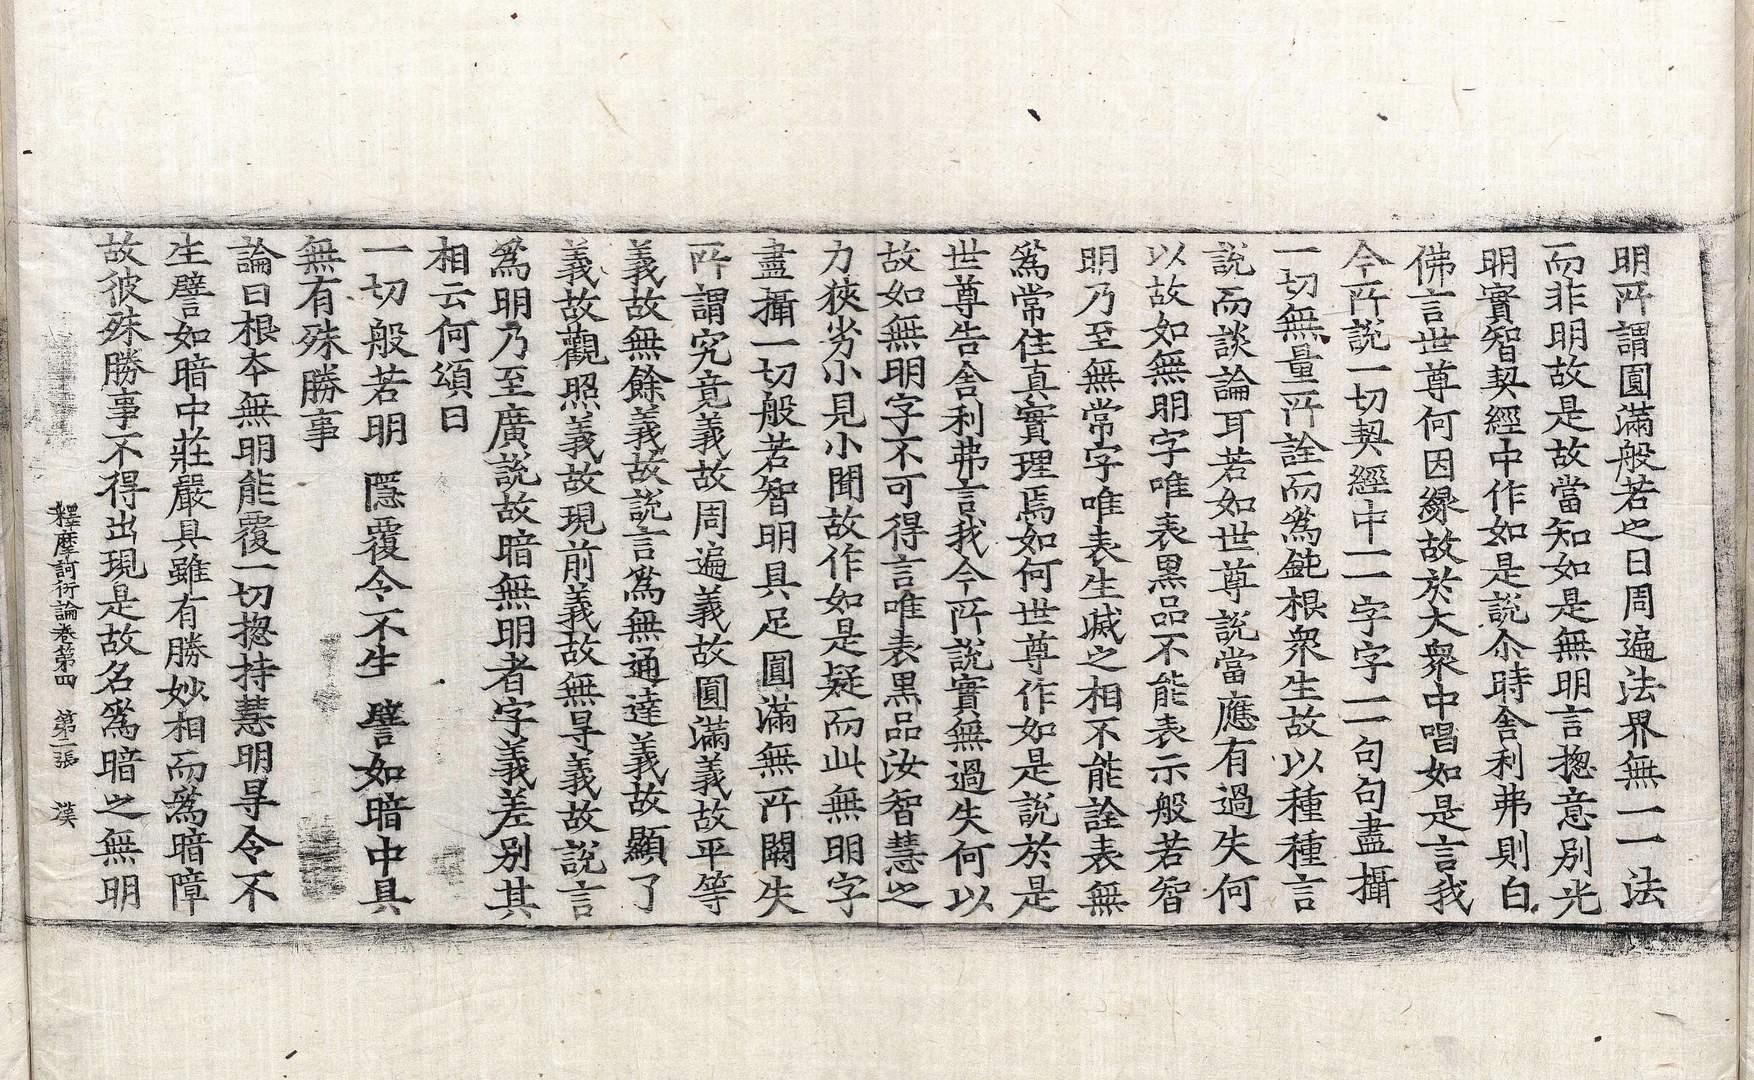 明所謂圓滿般若之日周遍法界無一一法
而非明故是故當知如是無明言揔意別光
明實智契經中作如是說尒時舍利弗則白
佛言世尊何因緣故於大衆中唱如是言我
今所說一切契經中一一字字一一句句盡攝
一切無量所詮而爲鈍根衆生故以種種言
說而談論耳若如世尊說當應有過失何
以故如無明字唯表黑品不能表示般若智
明乃至無常字唯表生滅之相不能詮表無
爲常住真實理焉如何世尊作如是說於是
世尊告舍利弗言我今所說實無過失何以
故如無明字不可得言唯表黑品汝智慧之
力狹劣小見小聞故作如是疑而此無明字
盡攝一切般若智明具足圓滿無所闕失
所謂究竟義故周遍義故圓滿義故平等
義故無餘義故說言爲無通達義故顯了
義故觀照義故現前義故無㝵義故說言
爲明乃至廣說故暗無明者字義差別其
相云何頌曰
一切般若明 隱覆令不生 譬如暗中具
無有殊勝事
論曰根本無明能覆一切揔持慧明㝵令不
生譬如暗中莊嚴具雖有勝妙相而爲暗障
故彼殊勝事不得出現是故名爲暗之無明
釋摩訶衍論卷第四 第二張 漢